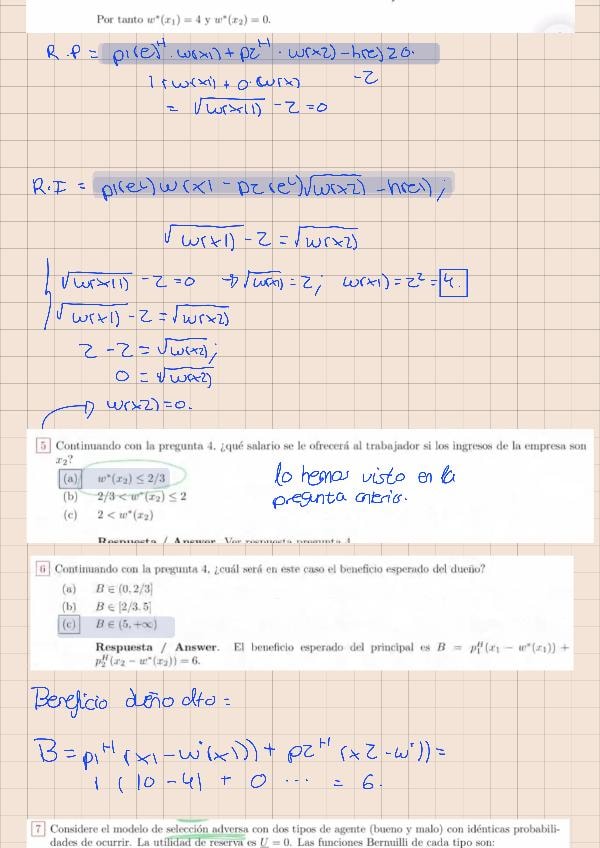 Por tanto w*(x₁) = 4 y w*(x₂) = 0.
R.P = p1(e)ᴴ · w(x1) + p2ᴴ · w(x2) - h(e) ≥ 0.
1 · w(x1) + 0 · w(x) -2
= √w(x(1) - 2 = 0
R.I = p1(eᴸ) w(x1 - p2(eᴸ)√w(x2) - h(e1);
√w(x1) - 2 = √w(x2)
√w(x(1) - 2 = 0 → √w(x1) = 2; w(x1) = 2² = 4.
√w(x1) - 2 = √w(x2)
2 - 2 = √w(x2);
0 = √w(x2)
→ w(x2) = 0.
5 Continuando con la pregunta 4, ¿qué salario se le ofrecerá al trabajador si los ingresos de la empresa son
x₂?
(a) w*(x₂) ≤ 2/3
(b) 2/3 < w*(x₂) ≤ 2
(c) 2 < w*(x₂)
lo hemos visto en la
pregunta anterior.
Respuesta / Answer. Ver respuesta pregunta 4
6 Continuando con la pregunta 4, ¿cuál será en este caso el beneficio esperado del dueño?
(a) B ∈ (0, 2/3]
(b) B ∈ [2/3, 5]
(c) B ∈ (5, +∞)
Respuesta / Answer. El beneficio esperado del principal es B = p₁ᴴ(x₁ − w*(x₁)) +
p₂ᴴ(x₂ − w*(x₂)) = 6.
Beneficio dueño alto =
B = p1ᴴ (x1 - w*(x1)) + p2ᴴ (x2 - w*)) =
1 (10 - 4) + 0 ... = 6.
7 Considere el modelo de selección adversa con dos tipos de agente (bueno y malo) con idénticas probabili-
dades de ocurrir. La utilidad de reserva es U = 0. Las funciones Bernuilli de cada tipo son: